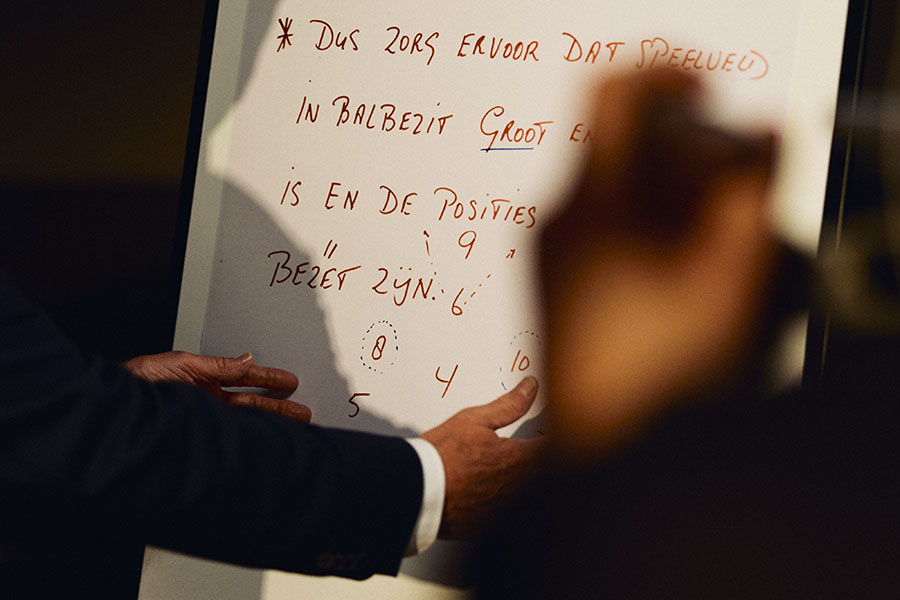 * DUS ZORG ERVOOR DAT SPEELVELD
IN BALBEZIT GROOT EN
IS EN DE POSITIES
BEZET ZIJN.
9
6
8
10
4
5